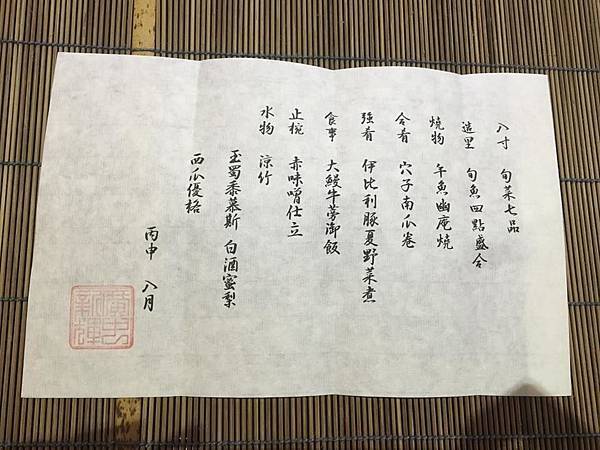 八寸 旬菜七品
造里 旬魚四點盛合
燒物 午魚幽庵燒
合肴 穴子南瓜卷
强肴 伊比利豚夏野菜煮
食事 大鰻牛蒡御飯
止椀 赤味噌仕立
水物 涼竹
玉蜀黍慕斯 白酒蜜梨
西瓜優格
丙申 八月